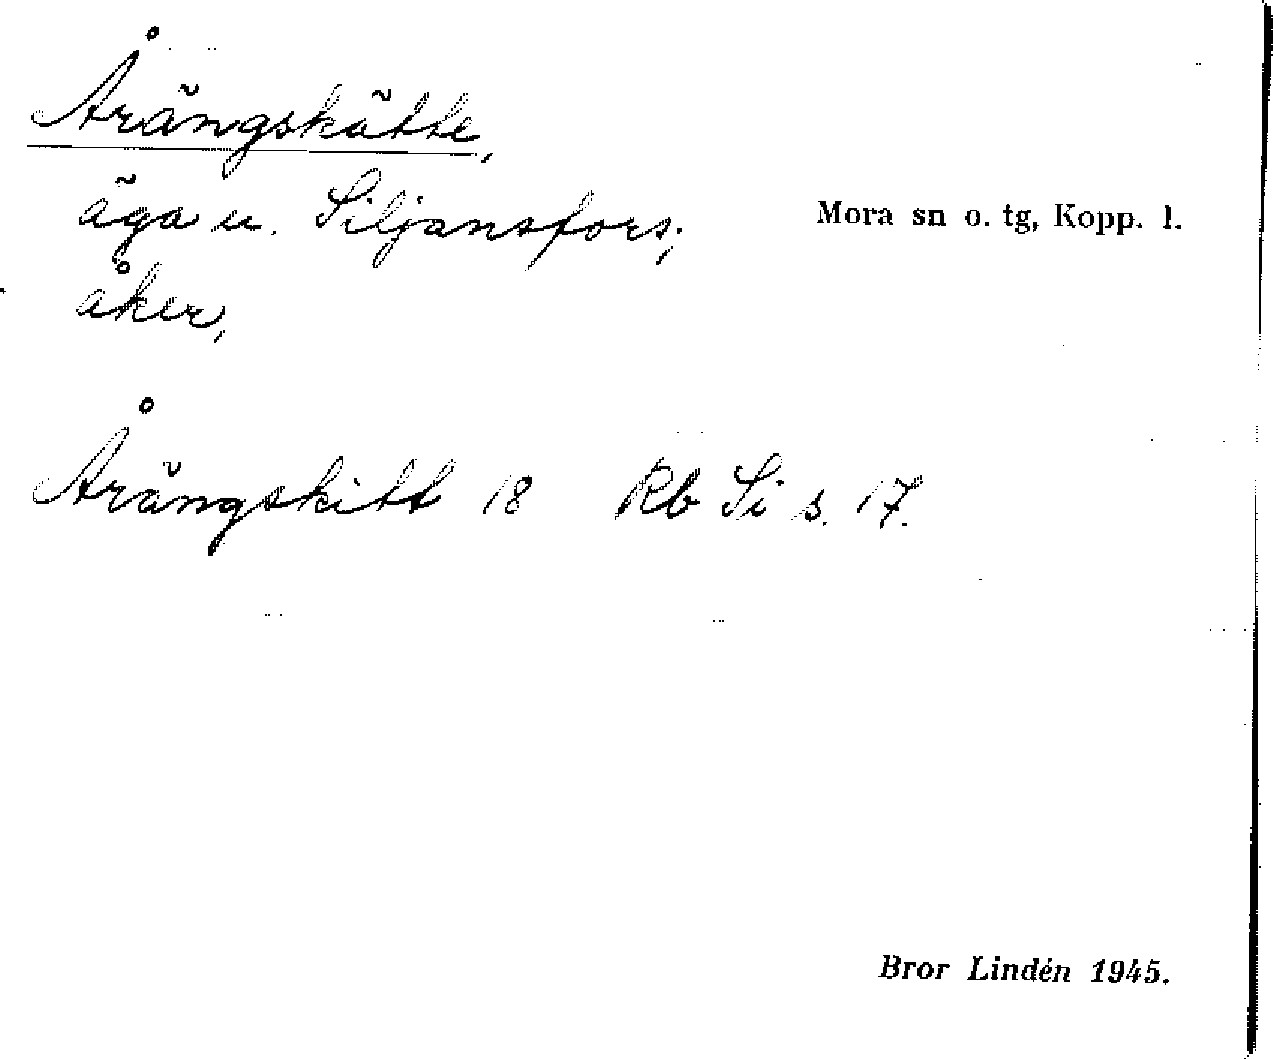 Årängskätte,
äga u. Siljansfors;
Mora sn o. tg, Kopp. l.
åker,
Årängskitt 18 Rb Si s. 17.
Bror Lindén 1945.